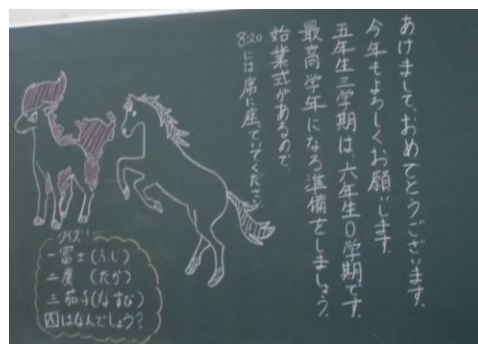 あけまして、おめでとうございます。
今年もよろしくお願いします。
五年生三学期は、六年生0学期です。
最高学年になる準備をしましょう。
始業式があるので、
8:20には席に座っていてください。
クイズ!
一富士(ふじ)
二鷹(たか)
三茄子(なすび)
四はなんでしょう?